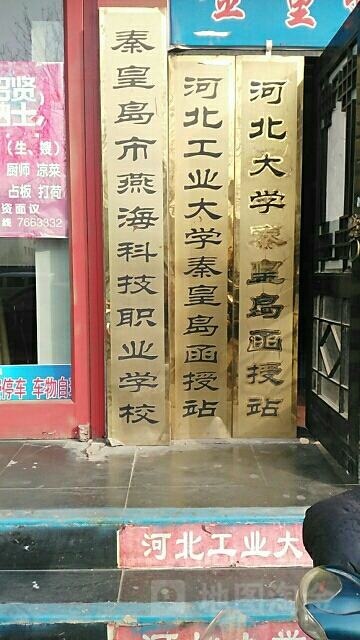 秦皇岛市燕海科技职业学校
河北工业大学秦皇岛函授站
河北大学秦皇岛函授站
（生、嫂）
厨师 凉菜
占板 打荷
资面议
线 7663332
停车 车物自
河北工业大